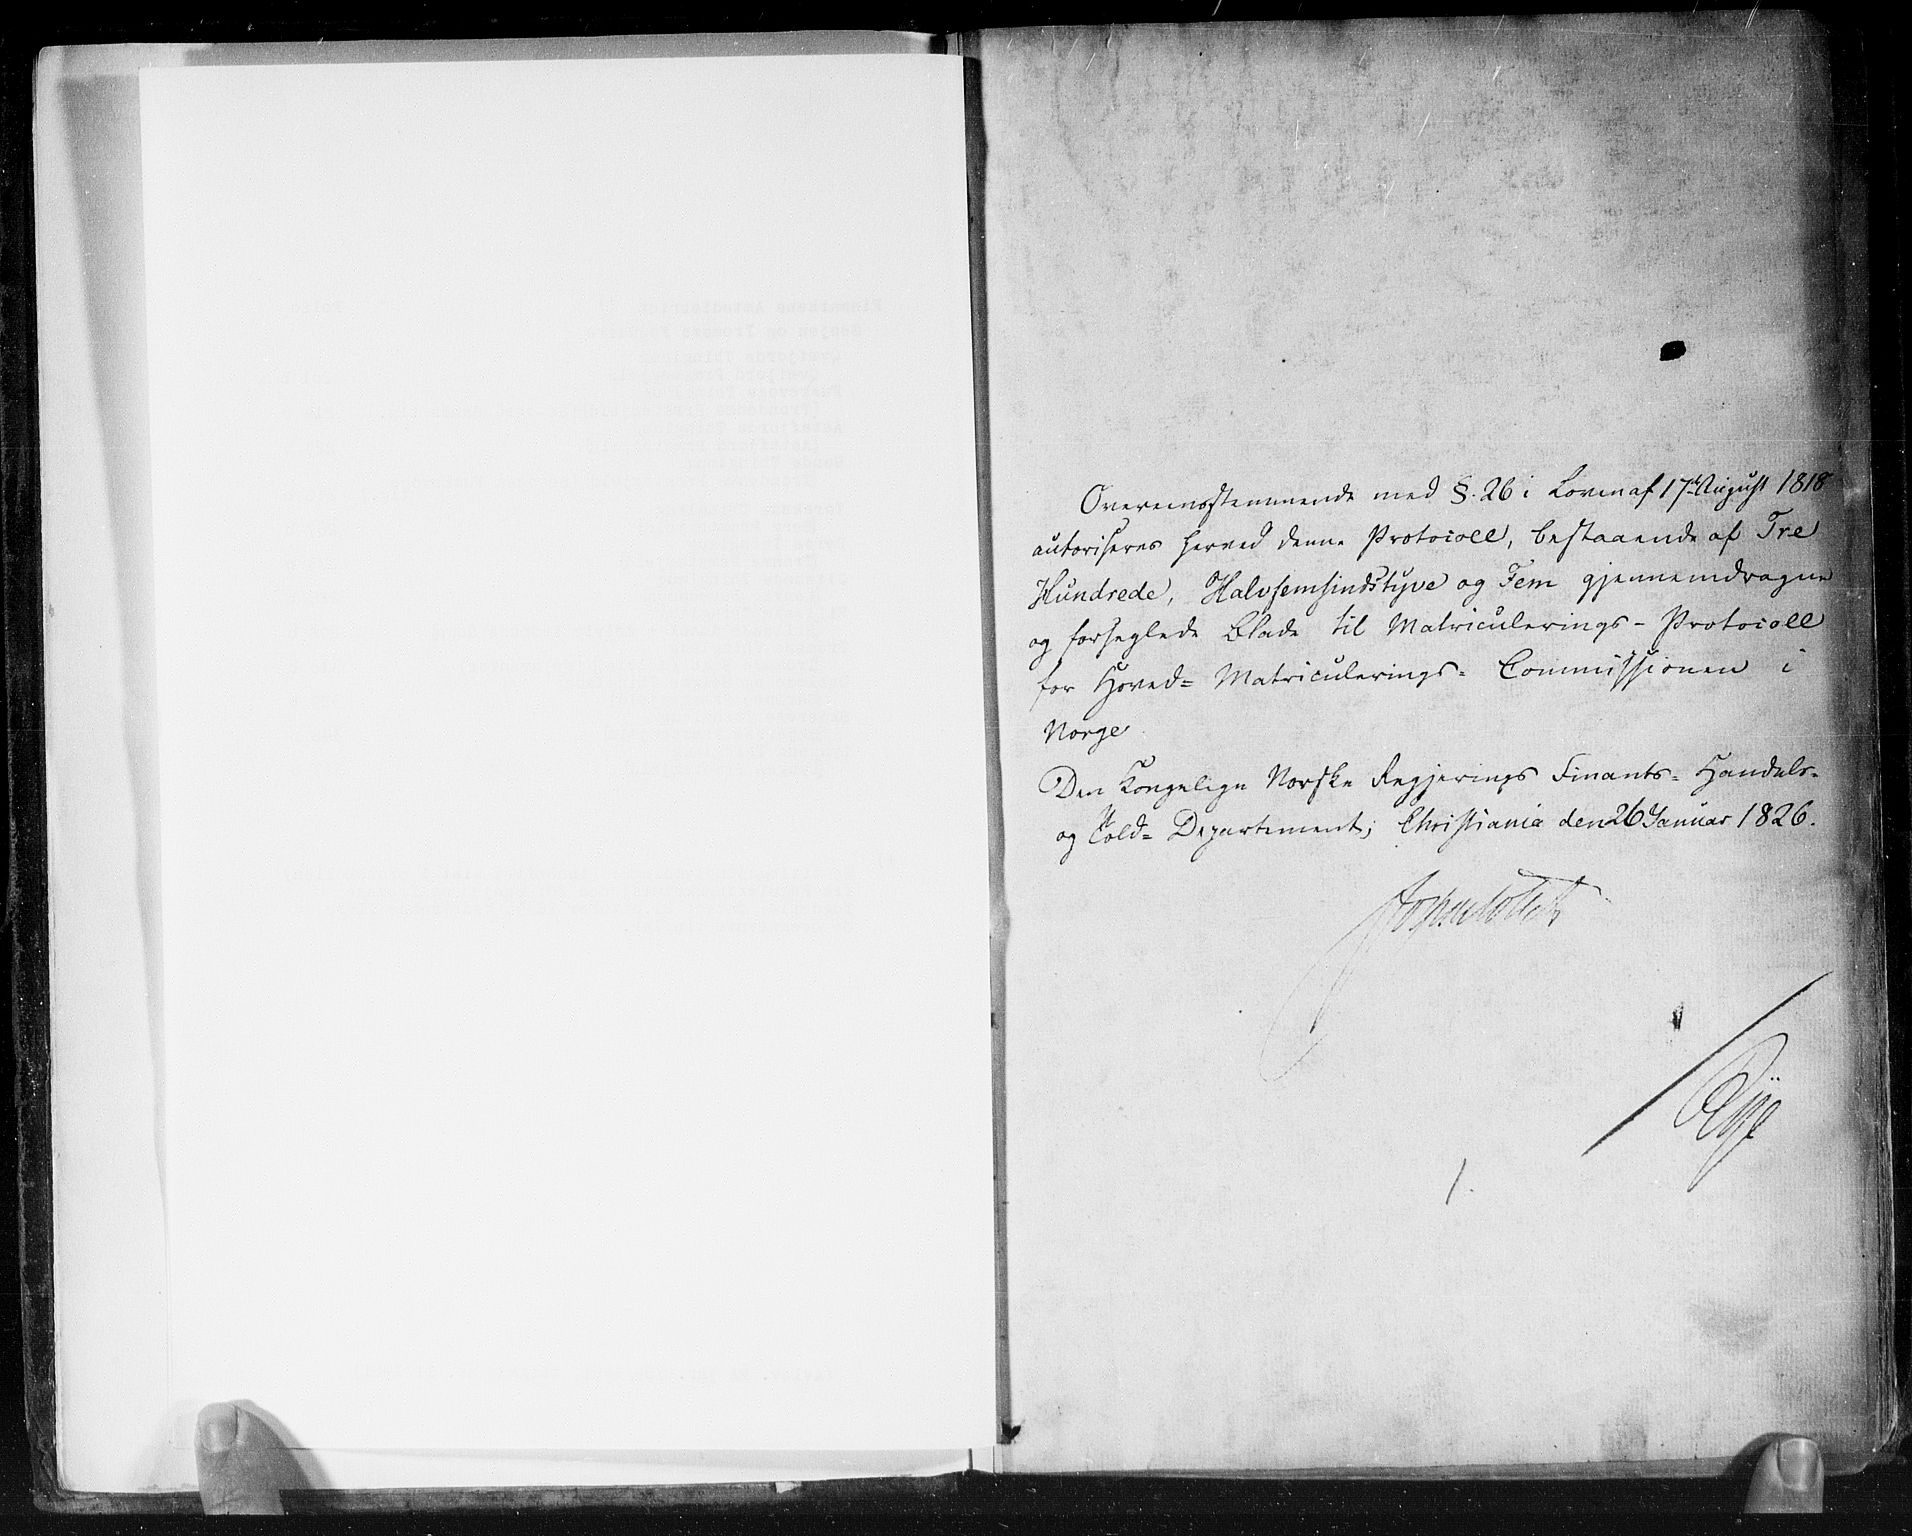 Overeensstemmende med §. 26 i Loven af 17de August 1818
autoriseres herved denne Protocoll, bestaaende af Tre
Hundrede, Halvfemsindstyve og Fem gjennemdragne
og forseglede Blade til Matriculerings-Protocoll
for Hoved= Matriculerings= Commissionen i
Norge
Den Kongelige Norske Regjerings Finants= Handels=
og Told= Departement; Christiania den 26 Januar 1826.
1.